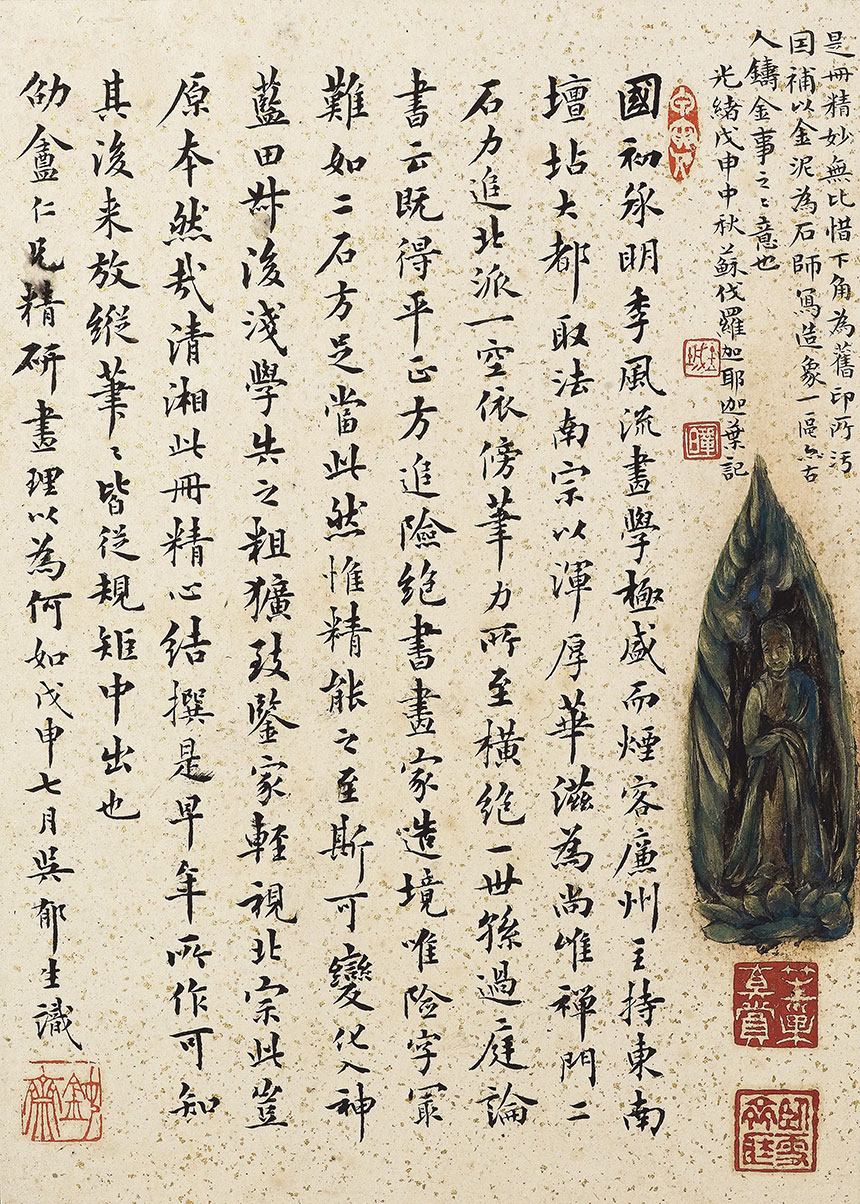 是冊精妙無比惜下角為舊印所污
因補以金泥為石師寫造象一區亦古
人鑄金事之之意也
光緒戊申中秋蘇伐羅迦耶迦葉記
國初承明季風流畫學極盛而煙客廉州主持東南
壇坫大都取法南宗以渾厚華滋為尚唯禪門二
石力追北派一空依傍筆力所至橫絕一世孫過庭論
書云既得平正方追險絕書畫家造境唯險字最
難如二石方足當此然惟精能之至斯可變化入神
藍田叔後淺學失之粗獷致鑒家輕視北宗此豈
原本然哉清湘此冊精心結撰是早年所作可知
其後来放縱筆筆皆從規矩中出也
劭盦仁兄精研畫理以為何如戊申七月吳郁生識
真賞